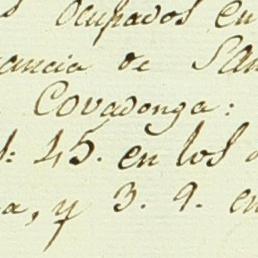 ocupados en
ancia de San
Covadonga:
45. en los
a, y 3. 9. en